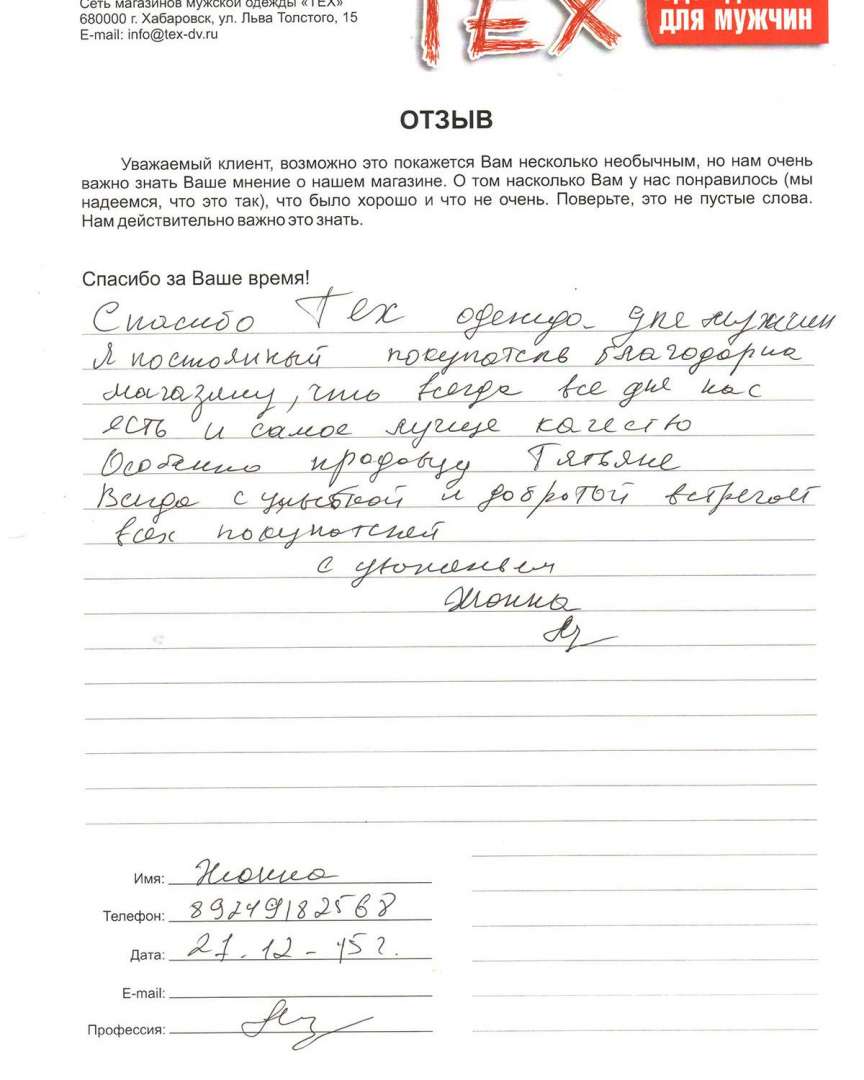 Сеть магазинов мужской одежды «ТЕХ»
680000 г. Хабаровск, ул. Льва Толстого, 15
E-mail: info@tex-dv.ru
ТЕХ
ДЛЯ МУЖЧИН
ОТЗЫВ
Уважаемый клиент, возможно это покажется Вам несколько необычным, но нам очень
важно знать Ваше мнение о нашем магазине. О том насколько Вам у нас понравилось (мы
надеемся, что это так), что было хорошо и что не очень. Поверьте, это не пустые слова.
Нам действительно важно это знать.
Спасибо за Ваше время!
Спасибо Тех одежда для мужчин
Я постоянный покупатель благодарна
магазину, что всегда все для нас
есть и самое лучще качество
Особенно продавцу Татьяне
Всегда с улыбкой и добротой встречает
всех покупателей
с уважением
Жанна
Имя: Жанна
Телефон: 89249182568
Дата: 27.12-15г.
E-mail:
Профессия: